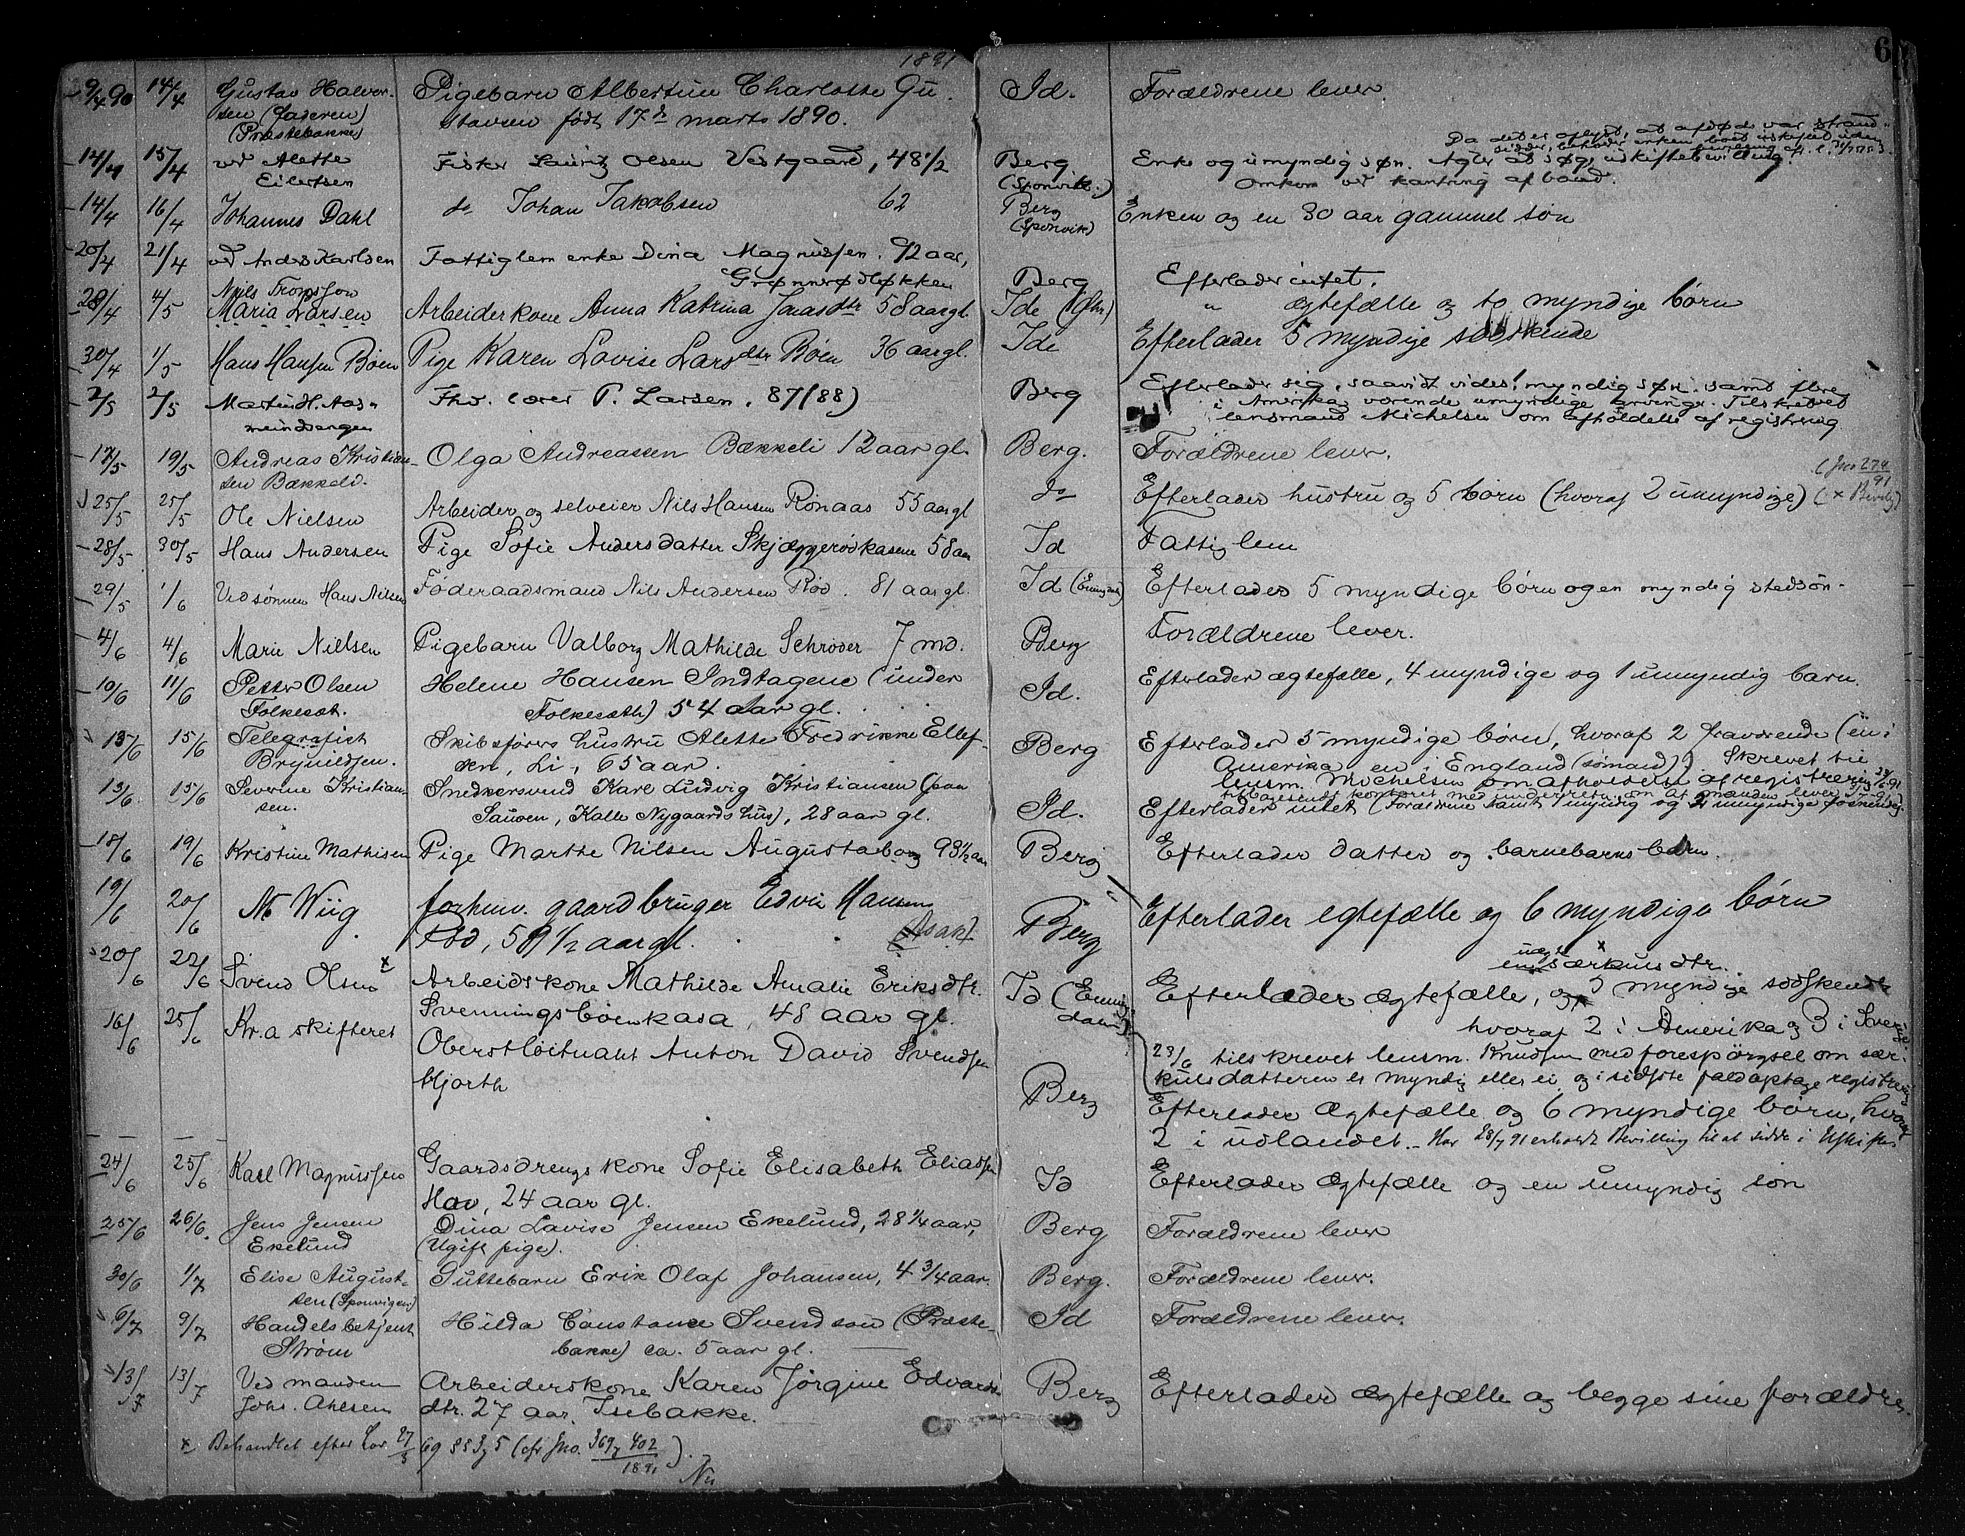 1891
6
9/4 90 14/4 Gustav Halvor- Pigebarn Albertine Charlotte Gu Id. Forældrene lever
sen (faderen) stavsen født 17de marts 1890.
(Præstebakke)
Da det er oplyst, at afdød var strand-
sidder, beholder enken boet uskiftet uden
14/4 15/4 ved Alette Fisker Lauritz Olsen Vestgaard, 48 1/2 Berg Enke og umyndig søn. Agter at søge uskiftebevilling.
Eilertsen (Sponvik.) Omkom ved kantring af baad.
14/4 16/4 Johannes Dahl do Johan Jakobsen 62 Berg Enken og en 30 aar gammel søn
(Sponvik)
20/4 21/4 ved Anders Karlsen Fattiglem enke Dina Magnussen. 92 aar,
Grønnerødløkken Berg Efterlader intet.
Nils
28/4 4/5 Maria Larsen Arbeiderkone Anna Katrina 58 aar gl. Ide " ægtefælle og to myndige børn
30/4 1/5 Hans Hansen Bøen Pige Karen Lovise Larsdtr Bøen 36 aar gl. Ide Efterlader 5 myndige sødskende
2/5 2/5 Martin H. Aas- Fhv. lærer P. Larsen, 87 (88) Berg Efterlader sig, saavidt vides, myndig søn samt flere
meindvangen i Amerika værende umyndige arvinge. Tilskrevet
lensmand Michelsen om afholdelse af registrering
17/5 19/5 Andreas Kristian- Olga Andreassen Bækkeli 12 aar gl. Berg. Forældrene lever.
sen Bækkeli.
(Jno 274/91
25/5 25/5 Ole Nielsen Arbeider og selveier Nils Hansen Rønaas 55 aar gl do Efterlader hustru og 5 børn (hvoraf 2 umyndige)
28/5 30/5 Hans Andersen Pige Sofie Andersdatter Skjæggerødkasene 58 aar Id Fattiglem
29/5 1/6 Ved sønnen Hans Nilsen Føderaadsmand Nils Andersen Rød. 81 aar gl. Id Efterlader 5 myndige børn og en myndig stedsøn.
4/6 4/6 Marie Nielsen Pigebarn Valborg Mathilde Schrøder 7 md. Berg Forældrene lever.
10/6 11/6 Petter Olsen Helene Hansen Indtagene (under Id. Efterlader ægtefælle, 4 myndige og 1 umyndig barn.
Folkesæt. Folkesæth) 54 aar gl.
13/6 15/6 Telegrafist Skibsførers hustru Alette Fredrikke Ellef- Berg Efterlader 5 myndige børn, hvoraf 2 fraværende (en i
Brynildsen. sen, Li, 65 aar. Amerika en i England (sømand)). Skrevet til
lensm. Michelsen om afholdelse af registrering
13/6 15/6 Severine Kristian- Snedkersvend Karl Ludvig Kristiansen (paa Id. Efterlader intet (Forældrene samt 1 myndig og 2 umyndige søskende)
sen. Sauøen, Kalle Nygaards hus), 28 aar gl.
18/6 19/6 Kristine Mathisen Pige Marthe Nilsen Augustaborg 93 1/2 aar Berg Efterlader datter og barnebarnsbarn.
19/6 20/6 N. Wiig forhenv. gaardbruger Edvin Hansen Berg Efterlader egtefælle og 6 myndige børn
Rød, 59 1/2 aar gl. (Asak)
20/6 22/6 Svend Olsen x Arbeidskone Mathilde Amalie Eriksdtr. Id (Enningdalen) Efterlader ægtefælle, en særkuls dtr. og 5 myndige sødskende
Svenningsbøenkasa, 48 aar gl. hvoraf 2 i Amerika og 3 i Sverige
23/6 tilskrevet lensm. Knudsen med forespørgsel om sær-
kulsdatteren er myndig eller ei og i sidste fald optage registrering
16/6 25/6 Kr.a skifteret Oberstløitnant Anton David Svendsen Berg Efterlader Ægtefælle og 6 myndige børn, hvoraf
Hjorth 2 i udlandet. Har 28/7 91 erholdt Bevilling til at sidde i Uskiftet
24/6 25/6 Karl Magnussen Gaardsdrengs kone Sofie Elisabeth Eliassen Id Efterlader Ægtefælle og en umyndig søn
Hov, 24 aar gl.
25/6 26/6. Jens Jensen Dina Lovise Jensen Ekelund, 28 1/4 aar, Berg Forældrene lever
Ekelund (Ugift pige).
30/6 1/7 Elise August- Guttebarn Erik Olaf Johansen, 4 3/4 aar. Berg. Forældrene lever.
sen (Sponvigen)
6/7 9/7 Handelsbetjent Hilda Constance Svendsen (Præste- Id Forældrene lever.
Strøm bakke) ca. 5 aar gl.
13/7 13/7 Ved manden Arbeiderskone Karen Jørgine Edvards Berg Efterlader ægtefælle og begge sine forældre.
Johs. Ahlsen dtr. 27 aar. Isebakke.
x Behandlet efter Lov 27/3 69 §§ 3, 5 (cfr Jno. 369, 402/1891).